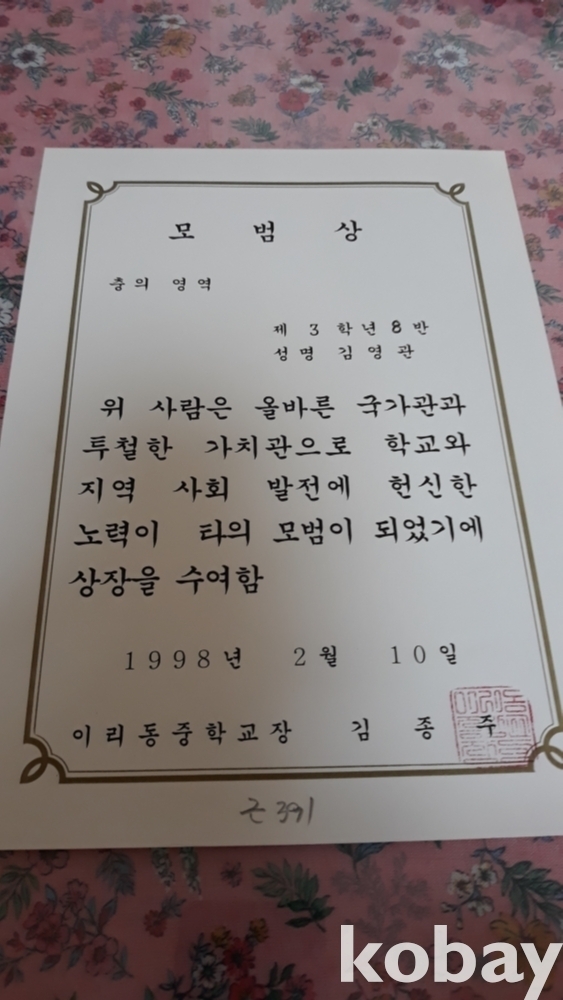 모 범 상
충의 영역
제 3 학년 8 반
성명 김영관
위 사람은 올바른 국가관과
투철한 가치관으로 학교와
지역 사회 발전에 헌신한
노력이 타의 모범이 되었기에
상장을 수여함
1998년 2월 10일
이리동중학교장 김 종 주
391
kobay